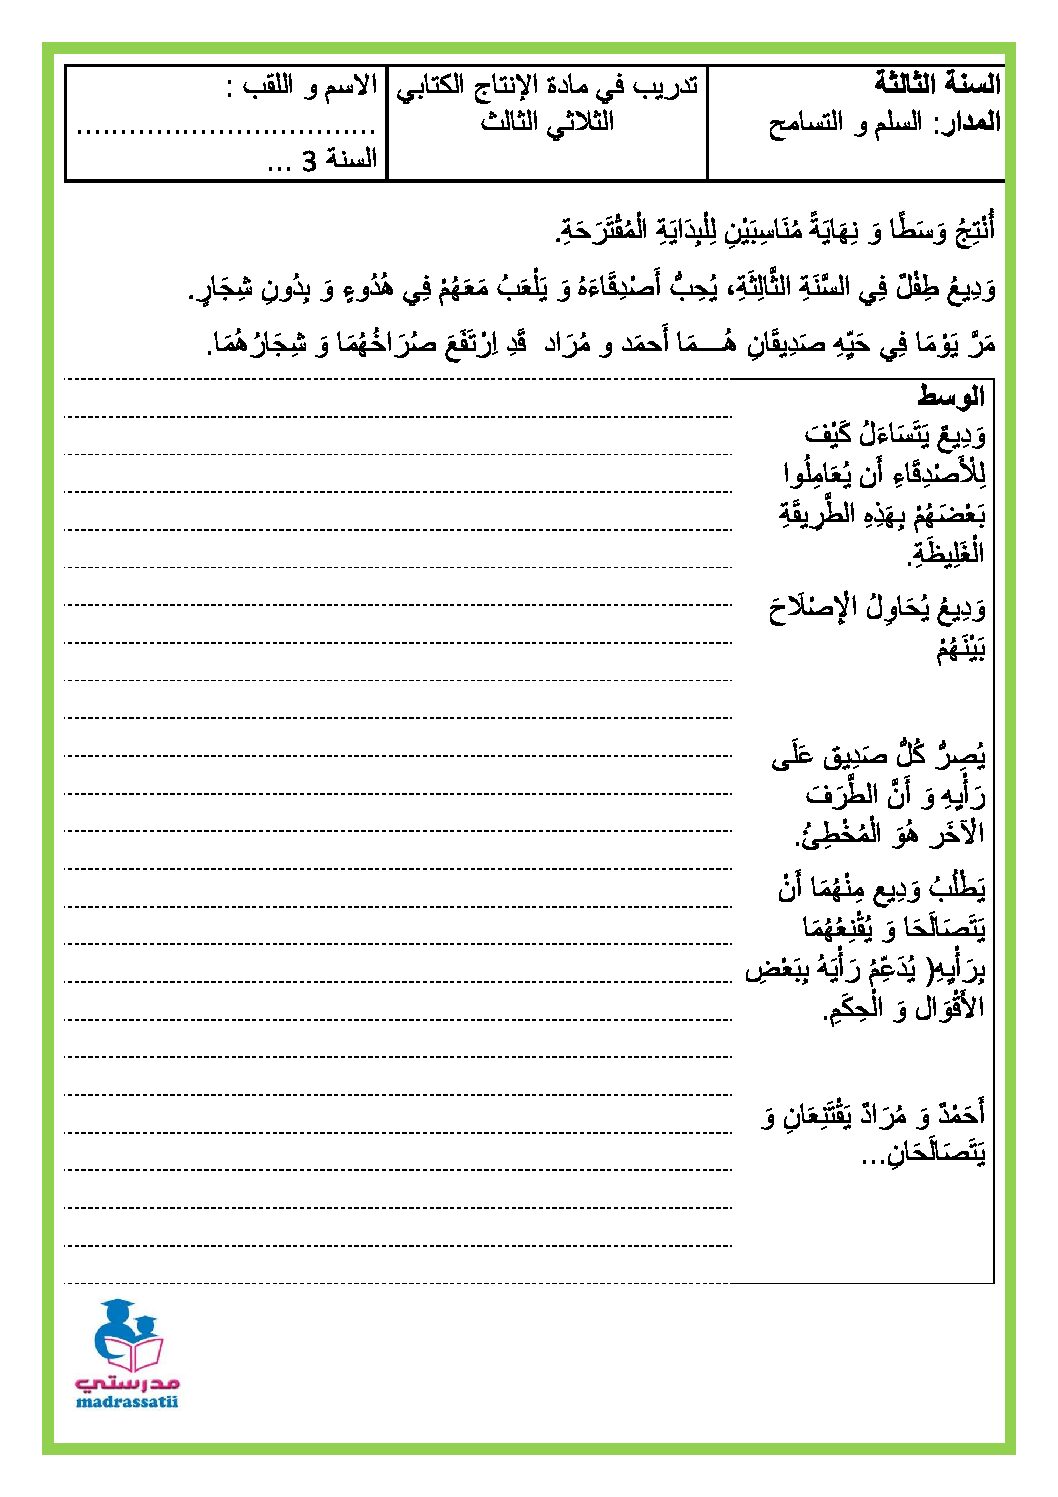 السنة الثالثة
المدار: السلم و التسامح
تدريب في مادة الإنتاج الكتابي
الثلاثي الثالث
الاسم و اللقب :
..................................
السنة 3 ...
أُنْتِجُ وَسَطًا وَ نِهَايَةً مُنَاسِبَيْنِ لِلْبِدَايَةِ الْمُقْتَرَحَةِ.
وَدِيعُ طِفْلٌ فِي السَّنَةِ الثَّالِثَةِ، يُحِبُّ أَصْدِقَاءَهُ وَ يَلْعَبُ مَعَهُمْ فِي هُدُوءٍ وَ بِدُونِ شِجَارٍ.
مَرَّ يَوْمَا فِي حَيِّهِ صَدِيقَانِ هُـــمَا أَحمَد و مُرَاد قَدِ اِرْتَفَعَ صُرَاخُهُمَا وَ شِجَارُهُمَا.
الوسط
وَدِيعٌ يَتَسَاءَلُ كَيْفَ
لِلْأَصْدِقَاءِ أَن يُعَامِلُوا
بَعْضَهُمْ بِهَذِهِ الطَّرِيقَةِ
الْغَلِيظَةِ.
وَدِيعُ يُحَاوِلُ الْإِصْلَاحَ
بَيْنَهُمْ
يُصِرُّ كُلُّ صَدِيق عَلَى
رَأْيِهِ وَ أَنَّ الطَّرَفَ
الْآخَر هُوَ الْمُخْطِئُ.
يَطْلُبُ وَدِيع مِنْهُمَا أَنْ
يَتَصَالَحَا وَ يُقْنِعُهُمَا
بِرَأْيِهِ( يُدَعِّمُ رَأْيَهُ بِبَعْضِ
الأَقْوَال وَ الْحِكَمِ.
أَحَمْدٌ وَ مُرَادٌ يَقْتَنِعَانِ وَ
يَتَصَالَحَانِ...
مدرستي
madrassatii